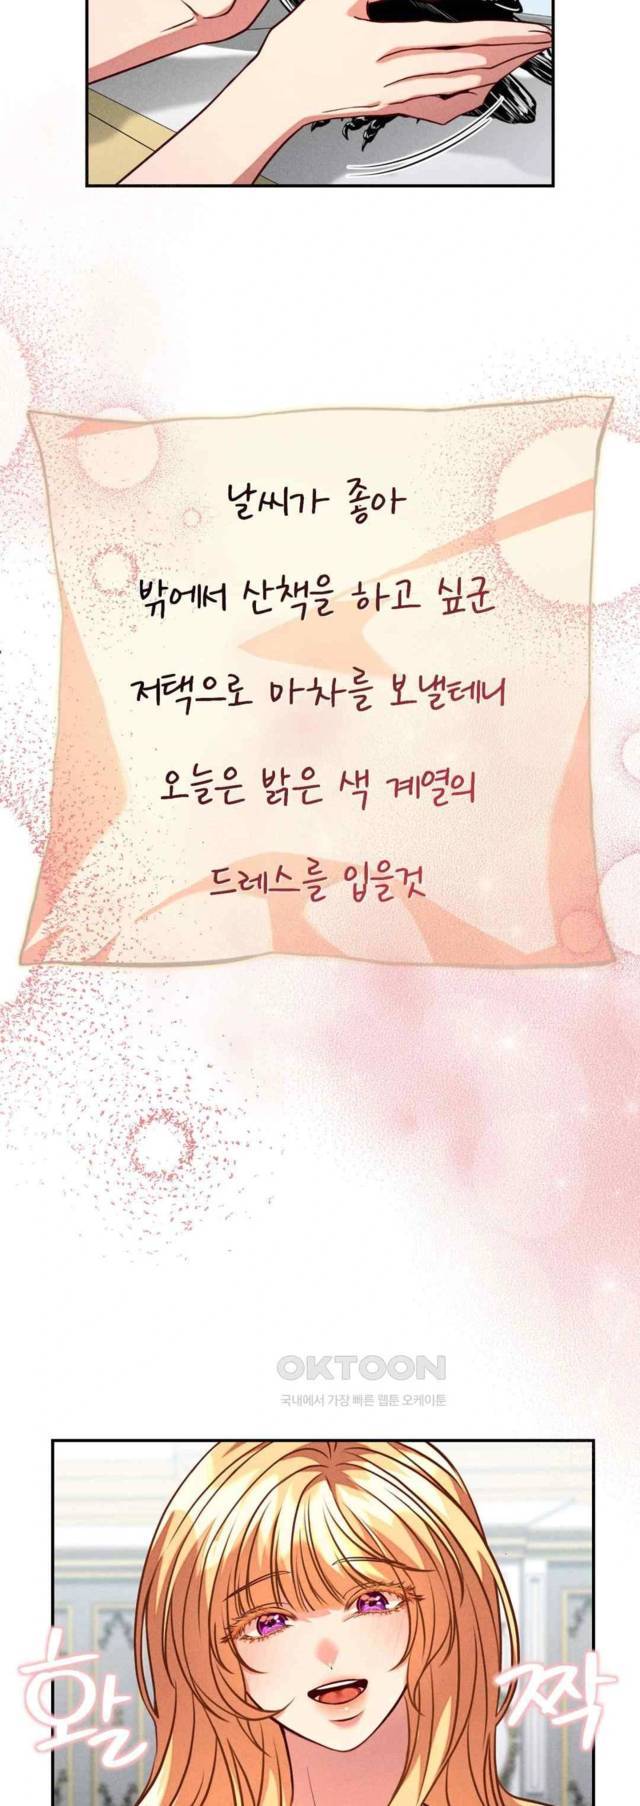 날씨가 좋아
밖에서 산책을 하고 싶군
저택으로 마차를 보낼테니
오늘은 밝은 색 계열의
드레스를 입을것
OKTOON
국내에서 가장 빠른 웹툰 오케이툰
활
짝